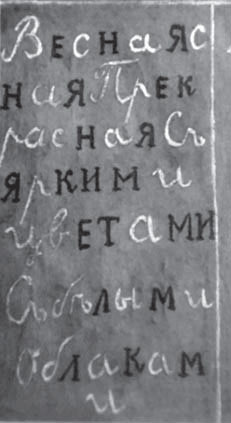 Весна яс
ная Прек
расная Съ
яркими
цветами
Съ бѣлыми
облакам
и